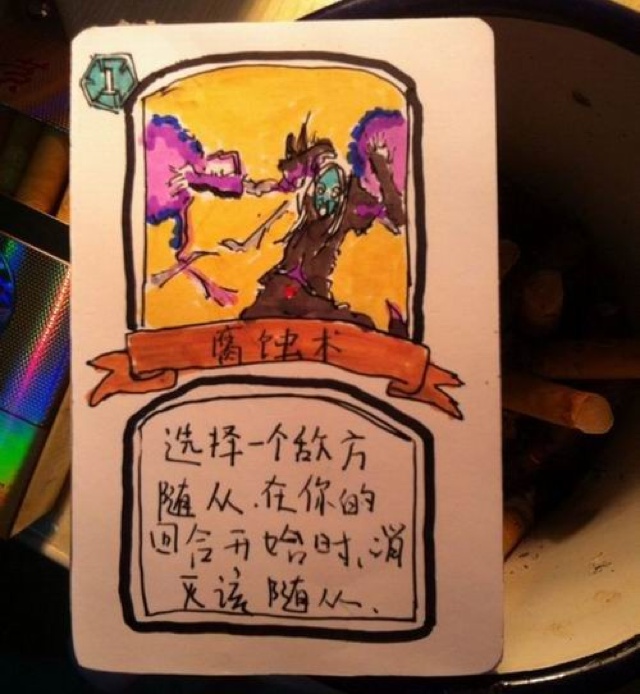 1
腐蚀术
选择一个敌方
随从.在你的
回合开始时,消
灭该随从.